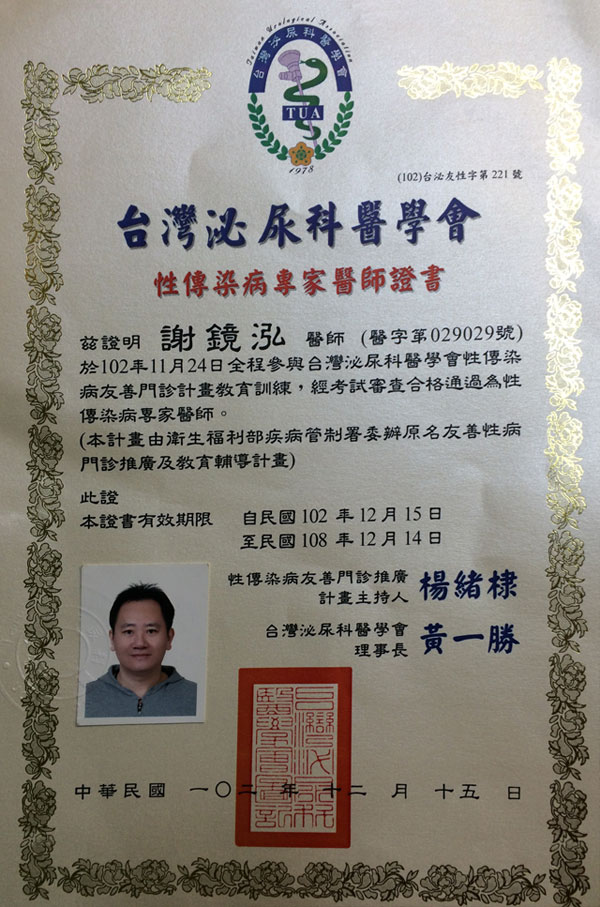 Taiwan Urological Association
台灣泌尿科醫學會
TUA
1978
(102)台泌友性字第 221 號
台灣泌尿科醫學會
性傳染病專家醫師證書
茲證明 謝鏡泓 醫師 (醫字第029029號)
於102年11月24日全程參與台灣泌尿科醫學會性傳染
病友善門診計畫教育訓練，經考試審查合格通過為性
傳染病專家醫師。
(本計畫由衛生福利部疾病管制署委辦原名友善性病
門診推廣及教育輔導計畫)
此證
本證書有效期限 自民國 102 年 12 月 15 日
至民國 108 年 12 月 14 日
性傳染病友善門診推廣
計畫主持人 楊緒棣
台灣泌尿科醫學會
理事長 黃一勝
中華民國 一〇二 年 十二 月 十五 日